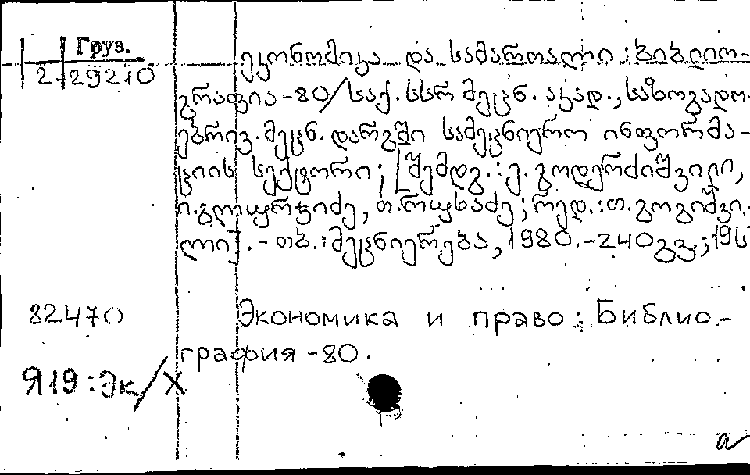 Груз.
2-29210
ეკონომიკა და სამართალი : ბიბლიო-
გრაფია -80/საქ. სსრ მეცნ. აკად., საზოგადო-
ებრივ. მეცნ. დარგში სამეცნიერო ინფორმა-
ციის სექტორი; [შემდგ.: ე. გოდერძიშვილი,
ი. გლურჯიძე, თ. რუხაძე; რედ.: თ. გოგიშვი-
ლი]. - თბ. : მეცნიერება, 1980. - 240გვ.; 19
82470
Экономика и право : Библио-
графия -80.
Я19 : Эк/Х
а